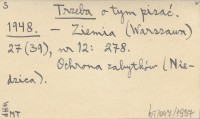 S
Trzeba o tym pisać.
1948. – Ziemia (Warszawa)
27 (39), nr 12: 278.
Ochrona zabytków (Nie-
dzica).
MT